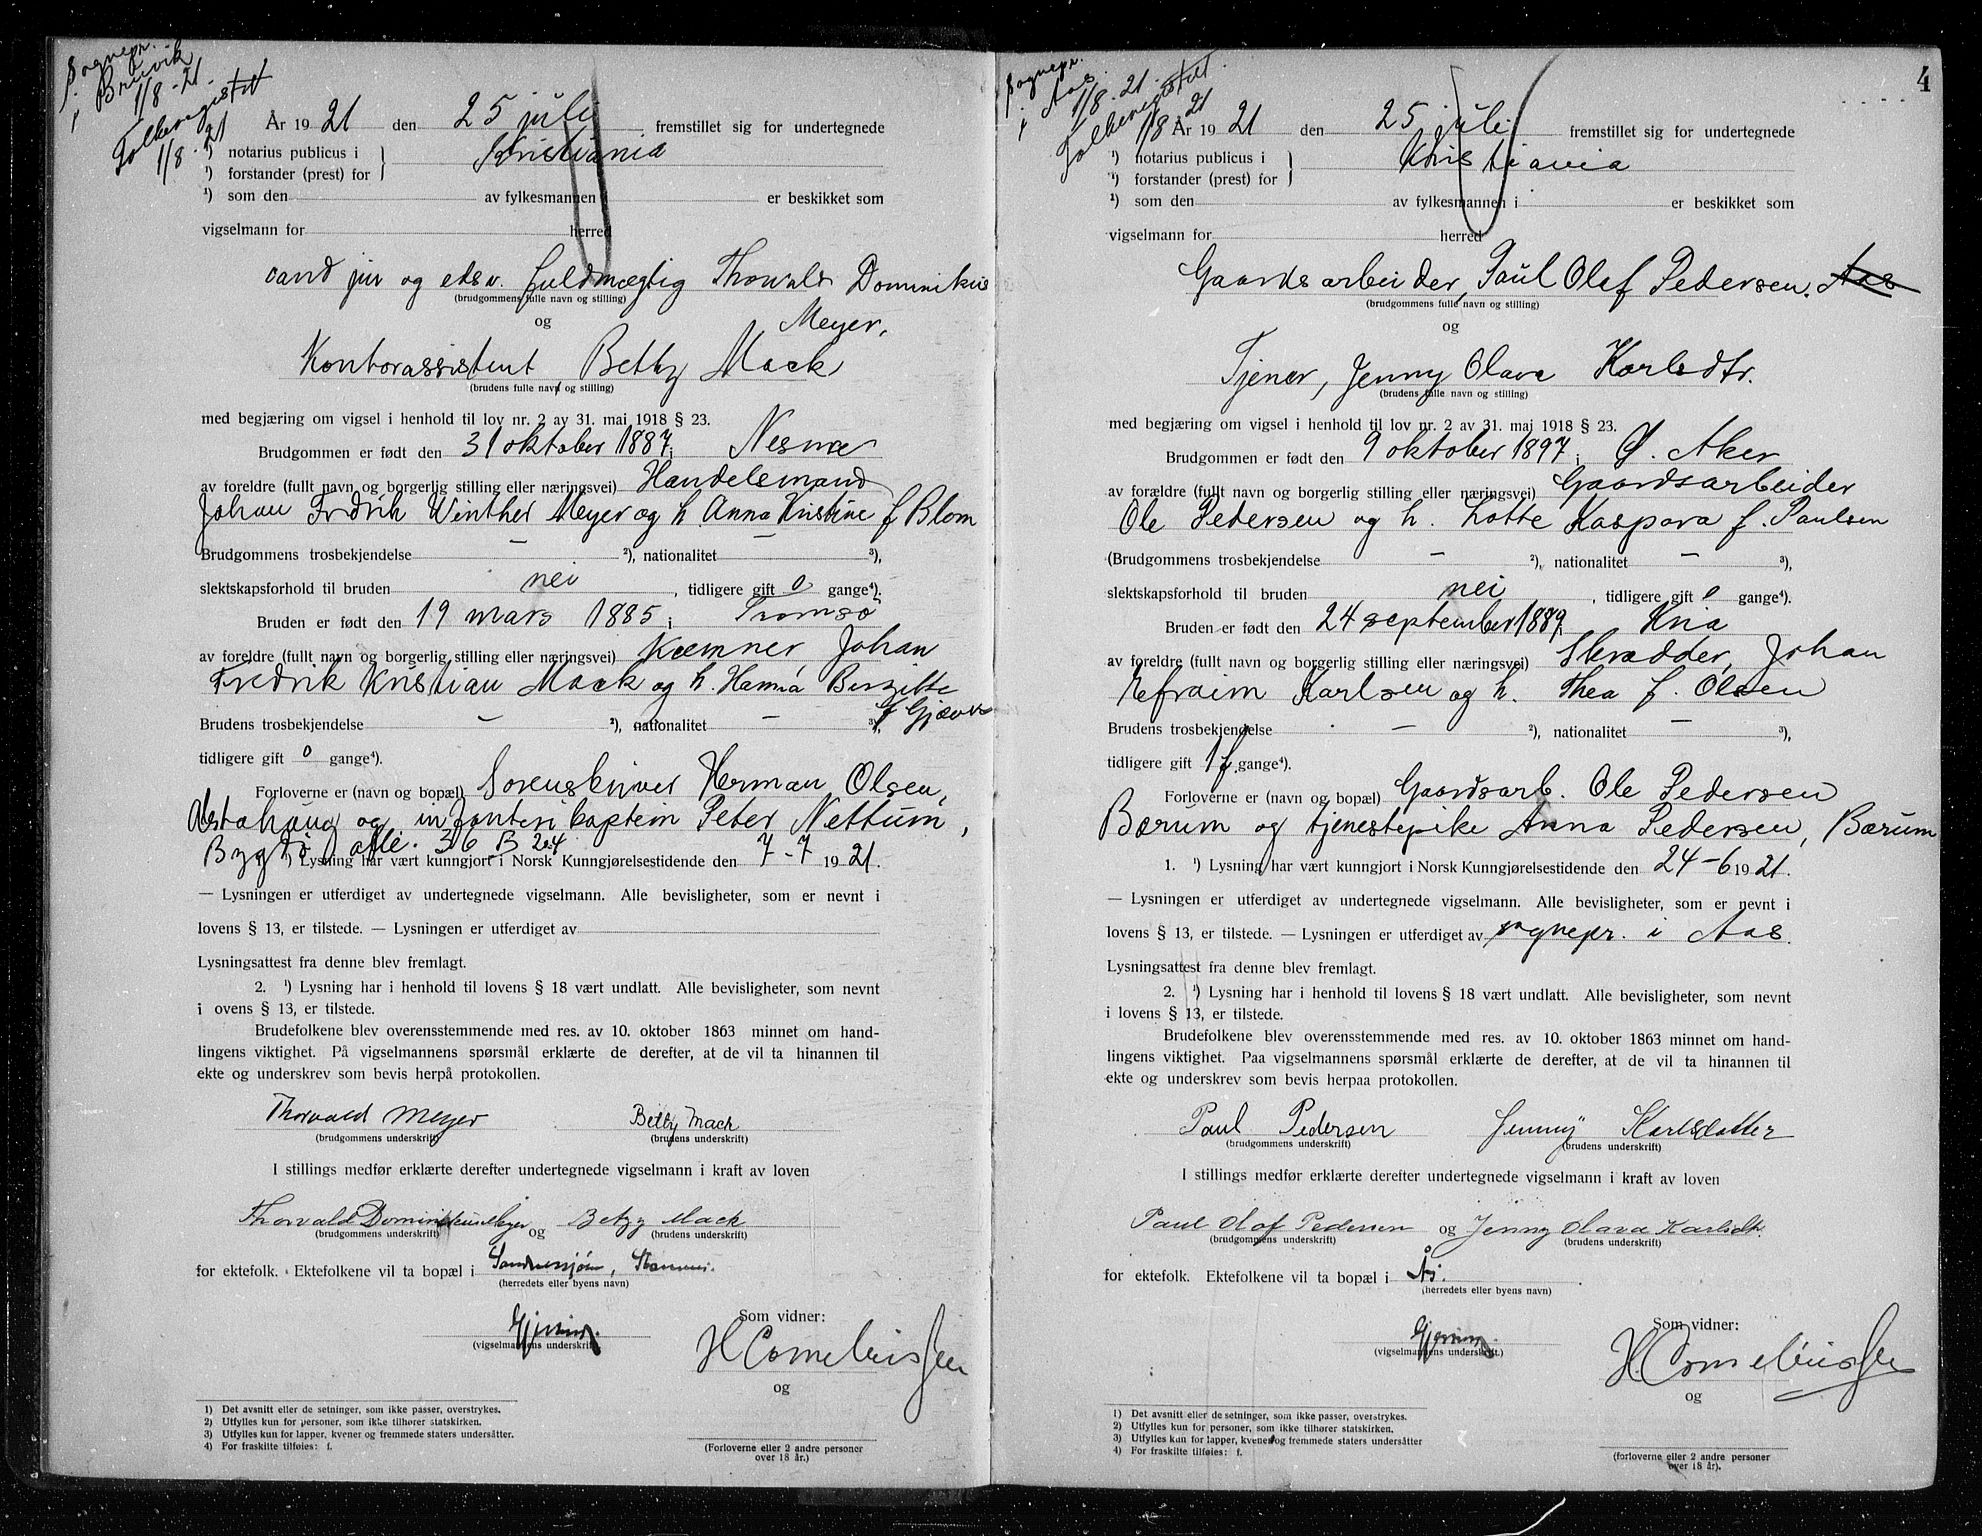 Sognepr.
i Bruvik
1/8-21.
Folkeregistret
1/8-21
År 1921 den 25 juli fremstillet sig for undertegnede
¹) notarius publicus i } Kristiania
¹) forstander (prest) for
¹) som den av fylkesmannen i er beskikket som
vigselmann for herred
cand jur og edsv. fuldmægtig Thorvald Dominikus
(brudgommens fulle navn og stilling)
og Meyer,
Kontorassistent Betzy Mack
(brudens fulle navn og stilling)
med begjæring om vigsel i henhold til lov nr. 2 av 31. mai 1918 § 23.
Brudgommen er født den 31 oktober 1887 i Nesna
av foreldre (fullt navn og borgerlig stilling eller næringsvei) Handelsmand
Johan Fredrik Winther Meyer og h. Anna Kristine f Blom
Brudgommens trosbekjendelse — ²), nationalitet — ³),
slektskapsforhold til bruden nei, tidligere gift 0 gange⁴).
Bruden er født den 19 mars 1885 i Tromsø
av foreldre (fullt navn og borgerlig stilling eller næringsvei) Kæmner Johan
Fredrik Kristian Mack og h. Hanna Bergitte
f Gjæver
Brudens trosbekjendelse — ²), nationalitet — ³),
tidligere gift 0 gange⁴).
Forloverne er (navn og bopæl) Sorenskriver Herman Olsen,
Alstahaug og infanterikaptein Peter Nettum,
Bygdø alle. 36 B
Lysning har vært kunngjort i Norsk Kunngjørelsestidende den 7-7 1921.
— Lysningen er utferdiget av undertegnede vigselmann. Alle bevisligheter, som er nevnt i
lovens § 13, er tilstede. — Lysningen er utferdiget av
Lysningsattest fra denne blev fremlagt.
2. ¹) Lysning har i henhold til lovens § 18 vært undlatt. Alle bevisligheter, som nevnt
i ovens § 13, er tilstede.
Brudefolkene blev overensstemmende med res. av 10. oktober 1863 minnet om hand-
lingens viktighet. På vigselmannens spørsmål erklærte de derefter, at de vil ta hinannen til
ekte og underskrev som bevis herpå protokollen.
Thorvald Meyer Betzy Mack
(brudgommens underskrift) (brudens underskrift)
I stillings medfør erklærte derefter undertegnede vigselmann i kraft av loven
Thorvald Dominikus Meyer og Betzy Mack
(brudgommens underskrift) (brudens underskrift)
for ektefolk. Ektefolkene vil ta bopæl i Sandnessjøen,
(herredets eller byens navn)
Som vidner:
(vigselmannens underskrift)
H Corneliussen
og
1) Det avsnitt eller de setninger, som ikke passer, overstrykes.
2) Utfylles kun for personer, som ikke tilhører statskirken.
3) Utfylles kun for lapper, kvener og fremmede staters undersåtter.
4) For fraskilte tilføies: f.
(Forloverne eller 2 andre personer
over 18 år.)
4
Sognepr.
i Aas.
1/8-21.
Folkeregistret.
1/8-21
År 1921 den 25 juli fremstillet sig for undertegnede
¹) notarius publicus i } Kristiania
¹) forstander (prest) for
¹) som den av fylkesmannen i er beskikket som
vigselmann for herred
Gaardsarbeider, Paul Olaf Pedersen. Aas
(brudgommens fulle navn og stilling)
og
Tjener, Jenny Olava Karlsdtr.
(brudens fulle navn og stilling)
med begjæring om vigsel i henhold til lov nr. 2 av 31. mai 1918 § 23.
Brudgommen er født den 9 oktober 1897 i Ø. Aker
av forældre (fullt navn og borgerlig stilling eller næringsvei) Gaardsarbeider
Ole Pedersen og h. Lotte Kaspara f. Paulsen
(Brudgommens trosbekjendelse — ²), nationalitet — ³),
slektskapsforhold til bruden nei, tidligere gift 0 gange⁴).
Bruden er født den 24 september 1889 i Kria
av foreldre (fullt navn og borgerlig stilling eller næringsvei) Skrædder, Johan
Efraim Karlsen og h. Thea f. Olsen
Brudens trosbekjendelse — ²), nationalitet — ³),
tidligere gift 1 f. gange⁴).
Forloverne er (navn og bopæl) Gaardsarb. Ole Pedersen
Bærum og tjenestepike Anna Pedersen, Bærum
1. ¹) Lysning har vært kunngjort i Norsk Kunngjørelsestidende den 24-6 1921.
— Lysningen er utferdiget av undertegnede vigselmann. Alle bevisligheter, som er nevnt i
lovens § 13, er tilstede. — Lysningen er utferdiget av sognepr. i Aas.
Lysningsattest fra denne blev fremlagt.
2. ¹) Lysning har i henhold til lovens § 18 vært undlatt. Alle bevisligheter, som nevnt
i lovens § 13, er tilstede.
Brudefolkene blev overensstemmende med res. av 10. oktober 1863 minnet om hand-
lingens viktighet. Paa vigselmannens spørsmål erklærte de derefter, at de vil ta hinannen til
ekte og underskrev som bevis herpaa protokollen.
Paul Pedersen Jenny Karlsdatter
(brudgommens underskrift) (brudens underskrift)
I stillings medfør erklærte derefter undertegnede vigselmann i kraft av loven
Paul Olaf Pedersen og Jenny Olava Karlsdtr.
(brudgommens underskrift) (brudens underskrift)
for ektefolk. Ektefolkene vil ta bopæl i Ås.
(herredets eller byens navn)
Som vidner:
(vigselmannens underskrift.)
H Corneliussen
og
1) Det avsnitt eller de setninger, som ikke passer, overstrykes.
2) Utfylles kun for personer, som ikke tilhører statskirken.
3) Utfylles kun for lapper, kvener og fremmede staters undersåtter
4) For fraskilte tilføies: f.
(forloverne eller 2 andre personer
over 18 år).